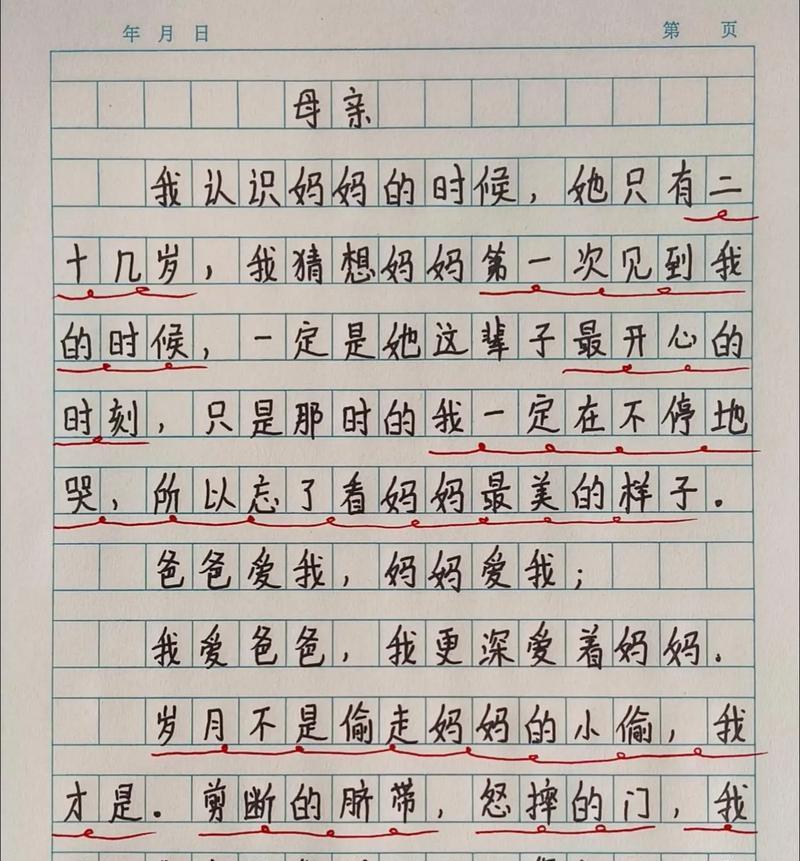 年 月 日 第 页
母亲
我认识妈妈的时候，她只有二
十几岁，我猜想妈妈第一次见到我
的时候，一定是她这辈子最开心的
时刻，只是那时的我一定在不停地
哭，所以忘了看妈妈最美的样子。
爸爸爱我，妈妈爱我；
我爱爸爸，我更深爱着妈妈.
岁月不是偷走妈妈的小偷，我
才是。剪断的脐带，怒摔的门，我